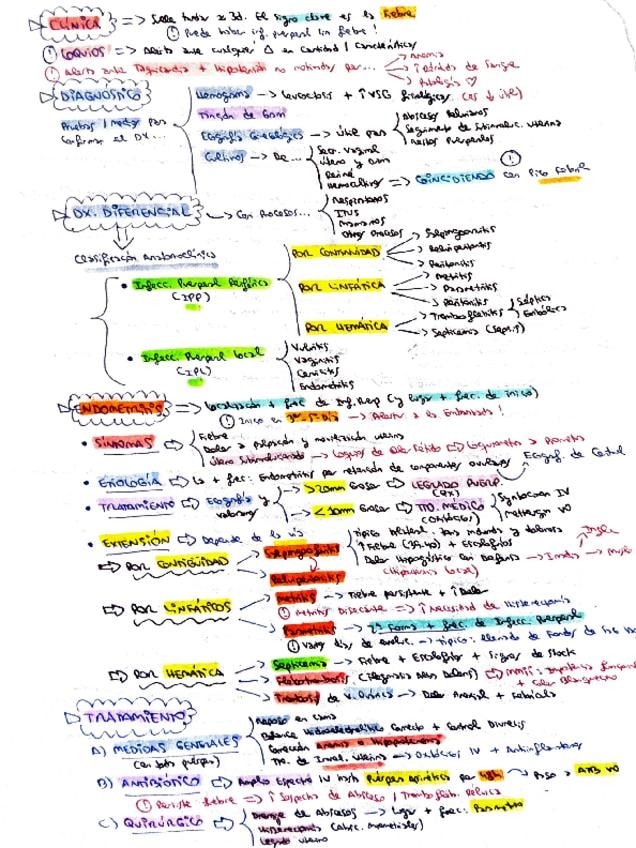 CLÍNICA => Suele tardar ≥ 3d. El signo clave es la Fiebre
① Puede haber inf. puerperal sin fiebre!
① LOQUIOS => Alerta ante cualquier Δ en Cantidad / Características
① Alerta ante Taquicardia + Hipotensión no motivadas por...
-> Anemia
-> ↑ Pérdida de Sangre
-> Patología ♡
DIAGNÓSTICO
Pruebas / medios para confirmar el DX...
Hemograma -> Leucocitosis + ↑VSG fisiológica (es ↓ útil)
Tinción de Gram
Ecografía Ginecológica -> Útil para
-> Abscesos Pélvicos
-> Seguimiento de Subinvoluc. Uterina
-> Restos Puerperales
Cultivos -> De...
Secr. Vaginal
Útero y
Hemocultivo => COINCIDIENDO con Pico Febril
DX. DIFERENCIAL -> Con Procesos...
Respiratorios
ITUS
Mamarios
Otros Procesos
Clasificación Anatomoclínica
• Infecc. Puerperal Periférica (IPP)
POR CONTINUIDAD
-> Salpingooforitis
-> Pelviperitonitis
-> Peritonitis
POR LINFÁTICA
-> Metritis
-> Parametritis
-> Peritonitis
POR HEMÁTICA
-> Tromboflebitis
Séptica
Embólica
-> Septicemia (Sepsis)
• Infecc. Puerperal Local (IPL)
Vulvitis
Vaginitis
Cervicitis
Endometritis
ENDOMETRITIS => Localización + frec de Inf. Puerp (y lugar + frec. de inicio)
① Inicio en 3er-5º Día -> Alertar a la Embarazada!
• SÍNTOMAS
Fiebre
Dolor a palpación y movilización uterina
Útero Subinvolucionado -> Loquios de olor fétido
• ETIOLOGÍA => La + frec: Endometritis por retención de componentes ovulares
Ecograf. de Control
• TRATAMIENTO => Ecografía y valorar
-> >20mm Grosor => LEGRADO PUERP. (QX)
-> <20mm Grosor => TTO. MÉDICO
Syntocinon IV
Methergin VO
• EXTENSIÓN => Depende de la vía
=> POR CONTIGÜIDAD
-> Salpingooforitis
↑ Fiebre (39-40) + Escalofríos
Dolor Hipogástrico con Defensa
-> Pelviperitonitis
=> POR LINFÁTICOS
-> Metritis -> Fiebre persistente + ↑ Dolor
① Metritis Disecante => ↑ Necesidad de Histerectomía
-> Parametritis -> 2ª Forma + frec de Infecc. Puerperal
=> POR HEMÁTICA
-> Septicemia -> Fiebre + Escalofríos + Signos de Shock
-> Flebotrombosis
-> Trombosis de V. Ovárica -> Dolor Anexial + Febrícula
TRATAMIENTO
A) MEDIDAS GENERALES
Reposo en cama
Balance Hidroelectrolítico Correcto + Control Diuresis
Corrección Anemia e Hipoproteinemia
Tto. de Invol. Uterina -> Oxitócicos IV + Antiinflamatorios
B) ANTIBIÓTICO => Amplio Espectro IV hasta Puérpera Apirética por 48h -> Paso a ATB VO
① Persiste fiebre => ↑ Sospecha de Absceso / Trombofleb. Pélvica
C) QUIRÚRGICO =>
Drenaje de Abscesos -> Lugar + frec: Parametrio
Histerectomía
Legrado uterino